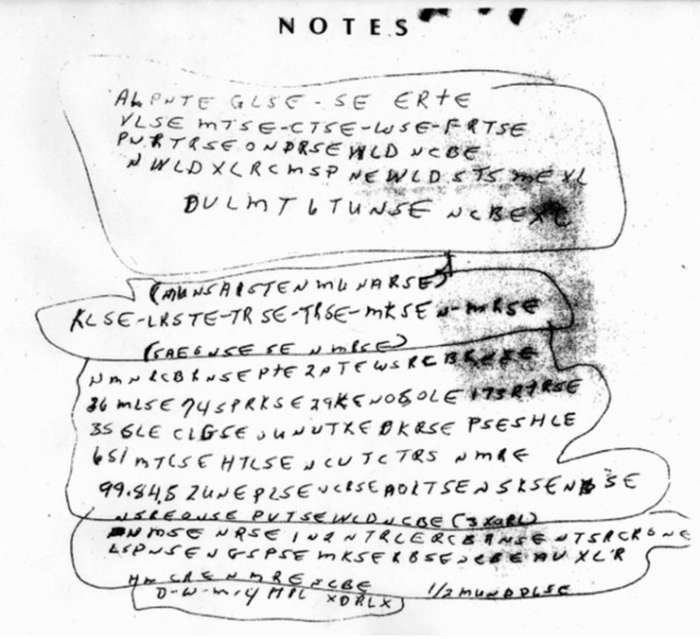 NOTES
ALPNTE GLSE-SE ERTE
VLSE MTSE-CTSE-WSE-FRTSE
PNRTRSEONDRSEWLD NCBE
NWLDXLRCMSP NEWLDSTS MEXL
DULMT6TUNSE NCBEXC
(MUNSAISTENMUNARSE)
KLSE-LRSTE-TRSE-TRSE-MKSEN-MRSE
(SAEGNSESE NMRSE)
NMNRCBRNSEPTE2PTEWSRCBRNSE
36MLSE74SPRKSE29KENOSOLE173RTRSE
35GLE CLGSE UNUTXE DKRSE PSESHLE
651MTCSE HTLSE NCUTCTRS NMRE
99.84.5 2UNEPLSE NCRSE AOLTSENSKSENBSE
NSREONSE PUTSEWLDNCBE (3XORL)
NMSE NRSE IN2NTRLERCBRNSE NTSRCRONE
LSPNSENGSPSE MKSERBSENCBE AUXLR
HMCRENMRENCBE 1/2MUNDDLSE
D-W-M-4 MIL XDRLX